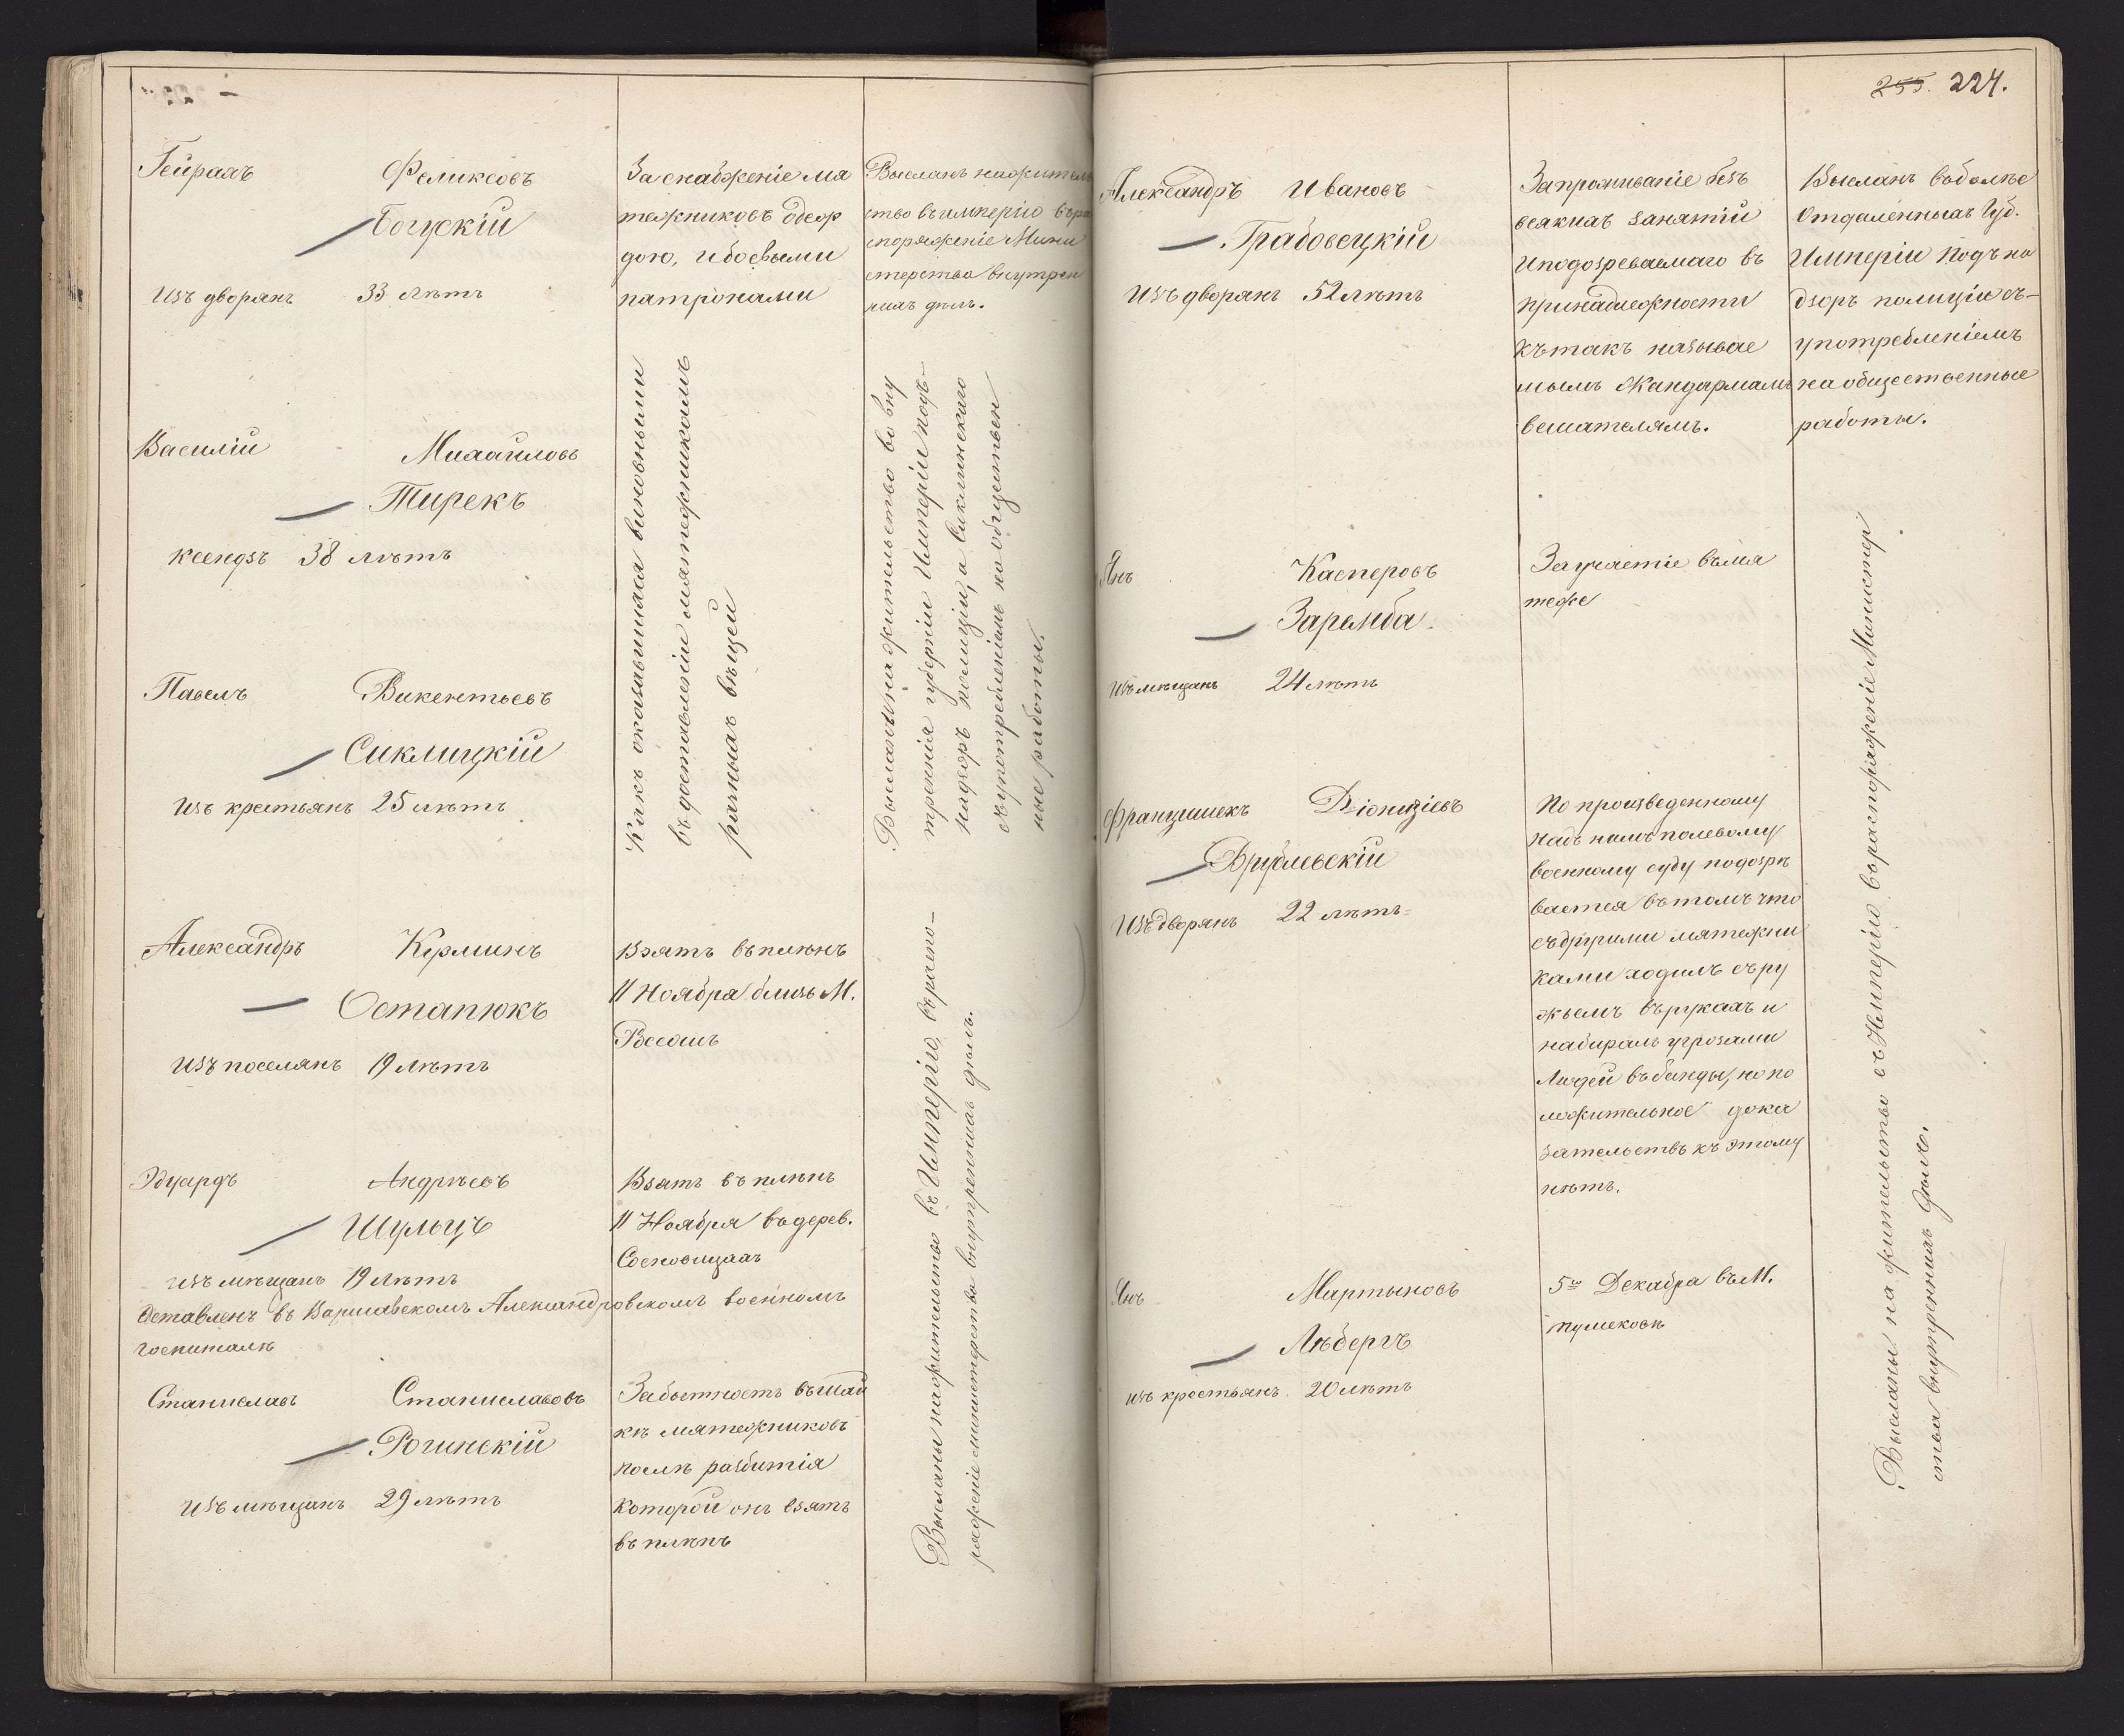 Гейрахъ Феликсовъ
Богускій
Изъ дворянъ 33 лѣтъ
За снабженіе мя
тежниковъ одеж
дою, и боевыми
патронами
Высланъ на житель
ство въ имперію въ ра
споряженіе Мини
стерства внутрен
нихъ дѣлъ.
Василій Михайловъ
Тирекъ
ксендзъ 38 лѣтъ
Павелъ Викентьевъ
Сиклицкій
Изъ крестьянъ 25 лѣтъ
Какъ оказавшихся виновными
въ доставленіи мятежникомъ
разныхъ вещей
Высланы на жительство во вну
треннія губерніи Имперіи подъ
надзоръ полиціи, а Сиклинскаго
съ употребленіемъ на обществен
ные работы.
Александръ Кузминъ
Остапюкъ
Изъ поселянъ 19 лѣтъ
Взятъ въ плѣнъ
11 Ноября близь М.
Россошъ
Эдуардъ Андрѣевъ
Шульцъ
изъ мѣщанъ 19 лѣтъ
Оставленъ въ Варшавскомъ Александровскомъ военномъ
госпиталѣ
Взятъ въ плѣнъ
11 Ноября въ дерев.
Сосновицахъ
Станиславъ Станиславовъ
Рогинскій
Изъ мѣщанъ 29 лѣтъ
За бытность въ шай
кѣ мятежниковъ
послѣ разбитія
которой онъ взятъ
въ плѣнъ
Высланы на жительство въ Имперію, въ распо-
ряженіе министерства внутреннихъ дѣлъ.
255. 224.
Александръ Ивановъ
Грабовецкій
Изъ дворянъ 52 лѣтъ
За проживаніе безъ
всякихъ занятій
и подозреваемаго въ
принадлежности
къ такъ называе
мымъ Жандармамъ
вешателямъ.
Высланъ въ болѣе
Отдаленныхъ Губ.
Имперіи подъ на
дзоръ полиціи съ-
употребленіемъ
на общественные
работы.
Янъ Касперовъ
Заремба
Изъ мѣщанъ 24 лѣтъ
За участіе въ мя
теже
Францишекъ Діонизіевъ
Врублевскій
Изъ дворянъ 22 лѣтъ
По произведенному
надъ нимъ полевому
военному суду подозрѣ
вается въ томъ что
съ другими мятежни
ками ходилъ съ ру
жьемъ въ рукахъ и
набиралъ угрозами
людей въ банды, но по
ложительное дока
зательствъ къ этому
нѣтъ.
Янъ Мартыновъ
Лѣбергъ
изъ крестьянъ 20 лѣтъ
5го Декабря въ М.
Тушековѣ
Высланы на жительство въ Имперію въ распоряженіе Министер
ства внутреннихъ Дѣлъ.